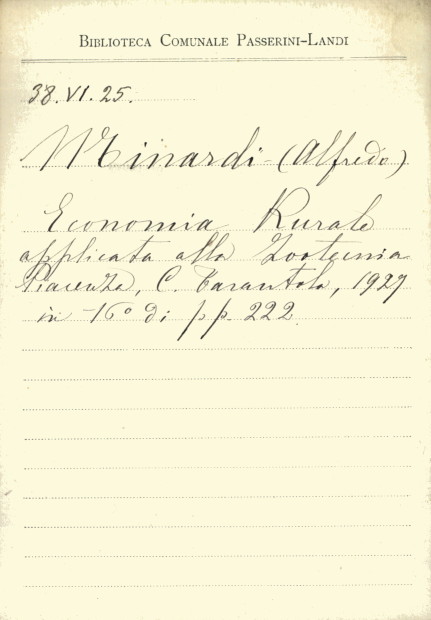 BIBLIOTECA COMUNALE PASSERINI-LANDI
38.VI.25.
Minardi (Alfredo)
Economia Rurale
applicata alla Zootecnia
Piacenza, C. Tarantola, 1927
in -16º di pp. 222